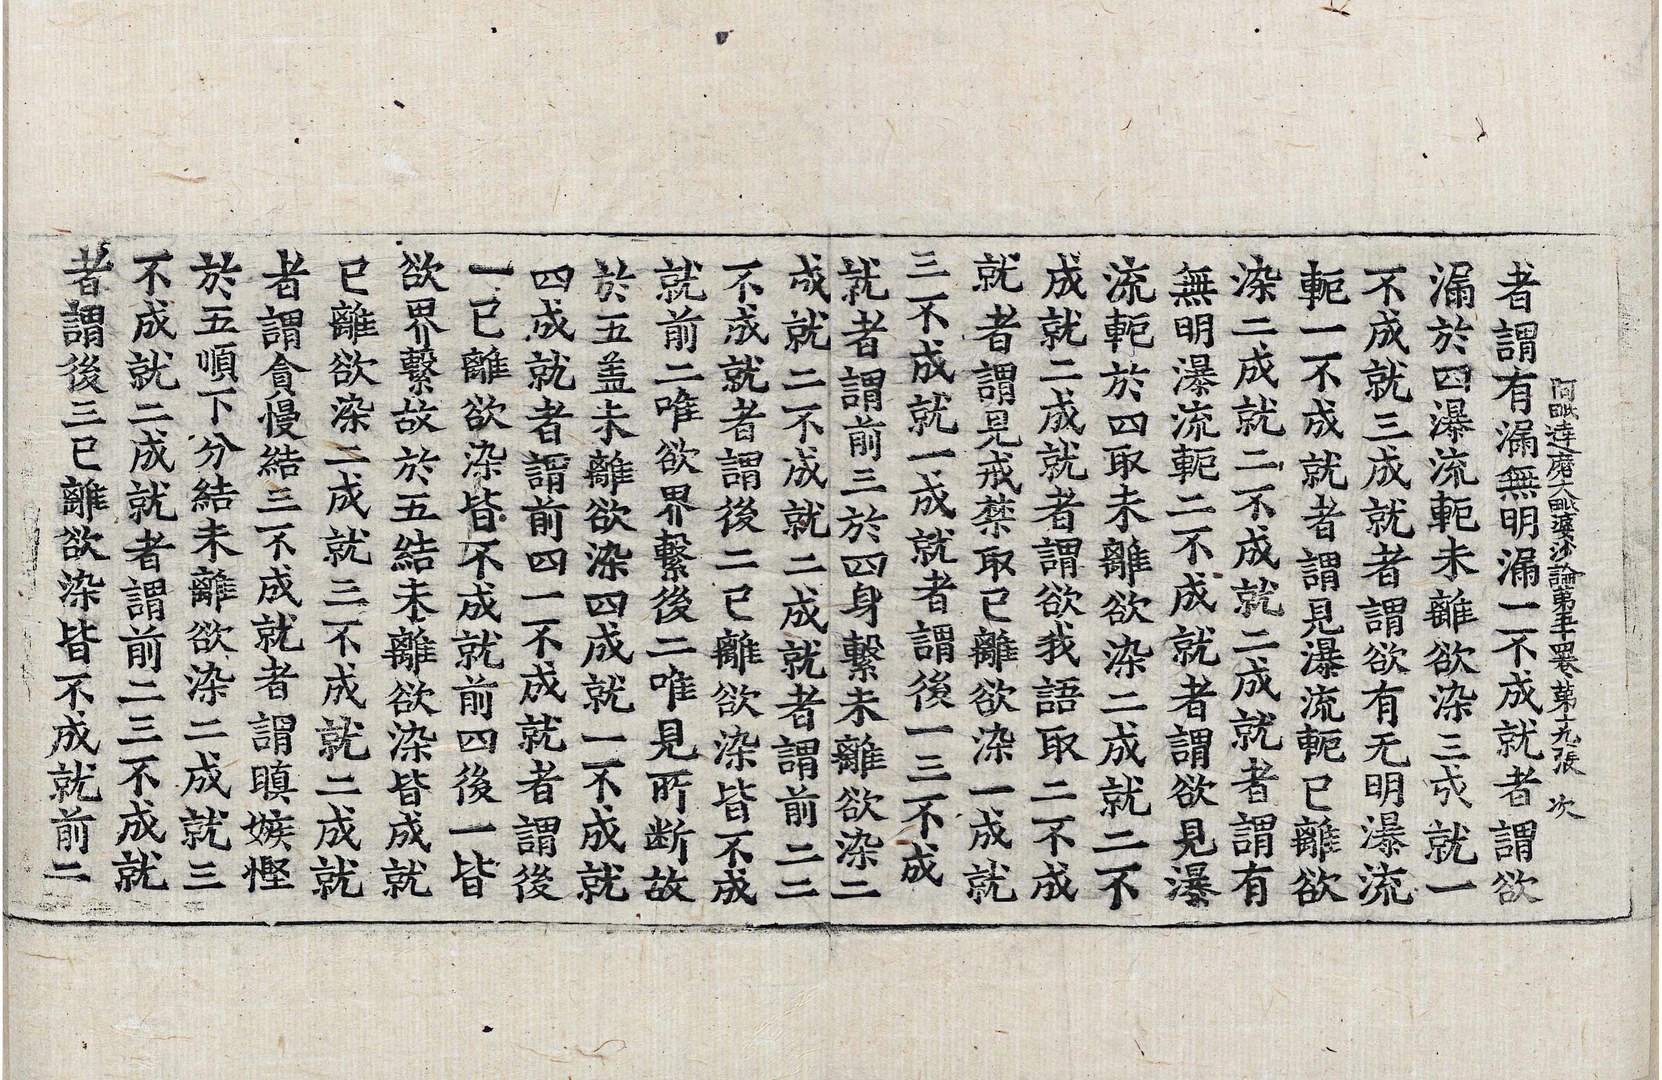 阿毗達磨大毗婆沙論第五十四卷 第十九張 次
者謂有漏無明漏一不成就者謂欲
漏於四瀑流軛未離欲染三成就一
不成就三成就者謂欲有无明瀑流
軛一不成就者謂見瀑流軛已離欲
染二成就二不成就二成就者謂有
無明瀑流軛二不成就者謂欲見瀑
流軛於四取未離欲染二成就二不
成就二成就者謂欲我語取二不成
就者謂見戒禁取已離欲染一成就
三不成就一成就者謂後一三不成
就者謂前三於四身繫未離欲染二
成就二不成就二成就者謂前二二
不成就者謂後二已離欲染皆不成
就前二唯欲界繫後二唯見所断故
於五盖未離欲染四成就一不成就
四成就者謂前四一不成就者謂後
一已離欲染皆不成就前四後一皆
欲界繫故於五結未離欲染皆成就
已離欲染二成就三不成就二成就
者謂貪慢結三不成就者謂瞋嫉慳
於五順下分結未離欲染二成就三
不成就二成就者謂前二三不成就
者謂後三已離欲染皆不成就前二